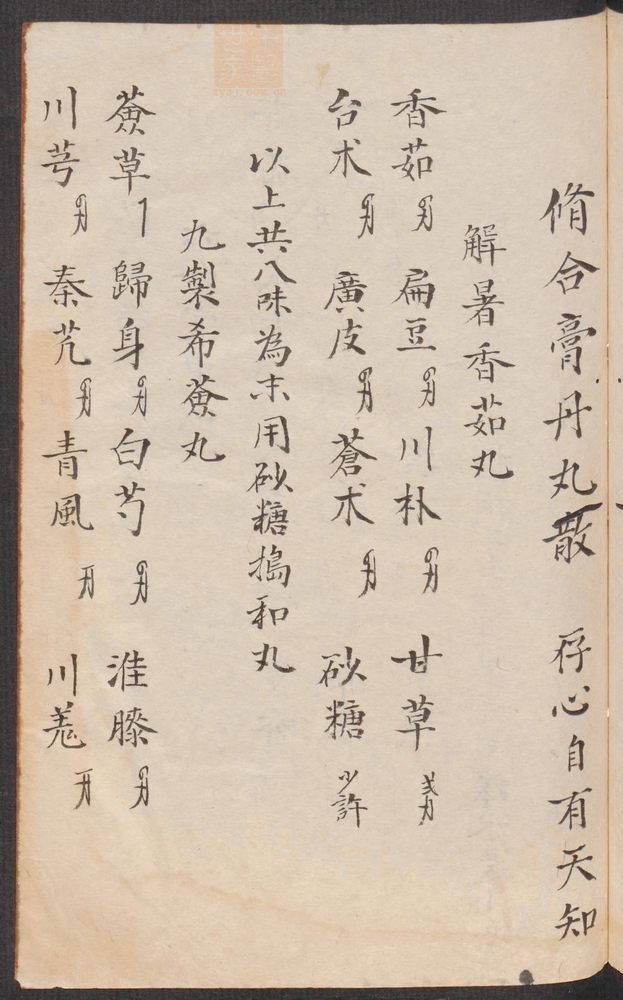 脩合膏丹丸散 存心自有天知
解暑香茹丸
香茹 扁豆 川朴 甘草
台术 廣皮 蒼术 砂糖 少許
以上共八味為末用砂糖搗和丸
九製希薟丸
薟草 歸身 白芍 淮膝
川芎 秦艽 青風 川羗